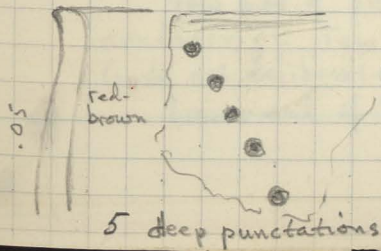 red-
brown
.05
5 deep punctations